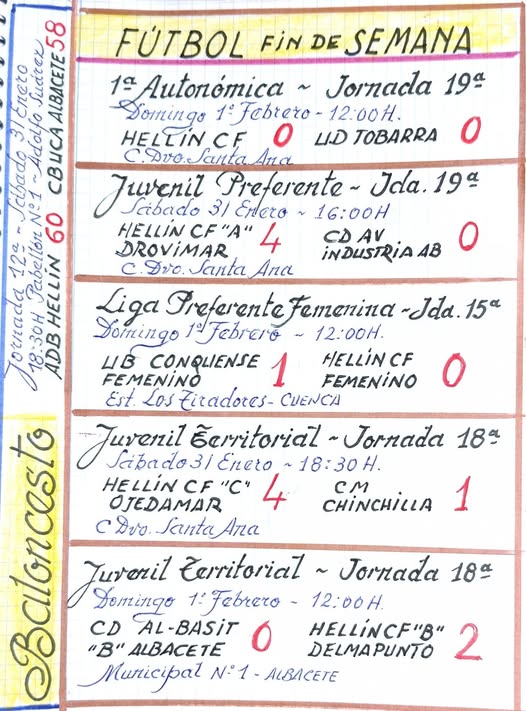 FÚTBOL FIN DE SEMANA
1ª Autonómica ~ Jornada 19ª
Domingo 1º Febrero - 12:00H.
HELLÍN CF 0 UD TOBARRA 0
C. Dvo. Santa Ana
Juvenil Preferente ~ Jda. 19ª
Sábado 31 Enero ~ 16:00H
HELLÍN CF "A" 4 CD AV 0
DROVIMAR INDUSTRIA AB
C. Dvo. Santa Ana
Liga Preferente Femenina ~ Jda. 15ª
Domingo 1º Febrero ~ 12:00H.
UB CONQUENSE 1 HELLÍN CF 0
FEMENINO FEMENINO
Est. Los Tiradores - CUENCA
Juvenil Territorial ~ Jornada 18ª
Sábado 31 Enero ~ 18:30H.
HELLÍN CF "C" 4 CM 1
OJEDAMAR CHINCHILLA
C Dvo. Santa Ana
Juvenil Territorial ~ Jornada 18ª
Domingo 1º Febrero ~ 12:00H.
CD AL-BASIT 0 HELLÍN CF "B" 2
"B" ALBACETE DELMAPUNTO
Municipal Nº 1 - ALBACETE
Baloncesto
Jornada 12ª ~ Sábado 31 Enero
18:30H Pabellón Nº 1 - Adolfo Suárez
ADB HELLÍN 60 CBUCA ALBACETE 58